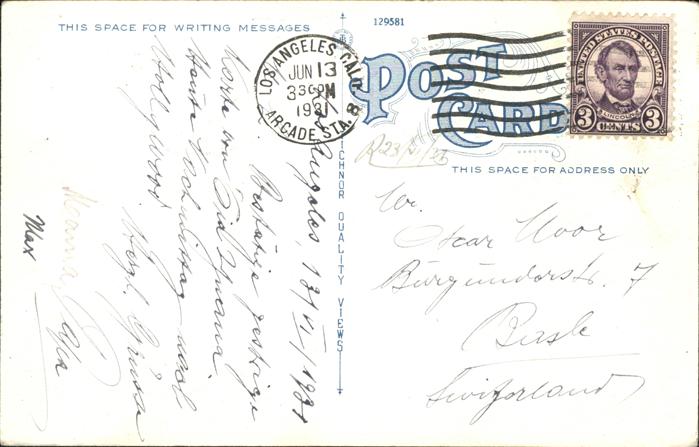 THIS SPACE FOR WRITING MESSAGES
129581
POST
CARD
LOS ANGELES CALIF.
JUN 13
3 30 PM
1931
ARCADE STA. 8
UNITED STATES POSTAGE
LINCOLN
3 CENTS 3
THIS SPACE FOR ADDRESS ONLY
TICHNOR QUALITY VIEWS
Los Angeles, 13/VI/1931
Bestätige gestrige
Karte von
Heute Nachmittag nach
Hollywood.
Herzl. Grüsse
Mama
Max
Mr.
Oscar
Burgunderstr. 7
Basle
Switzerland